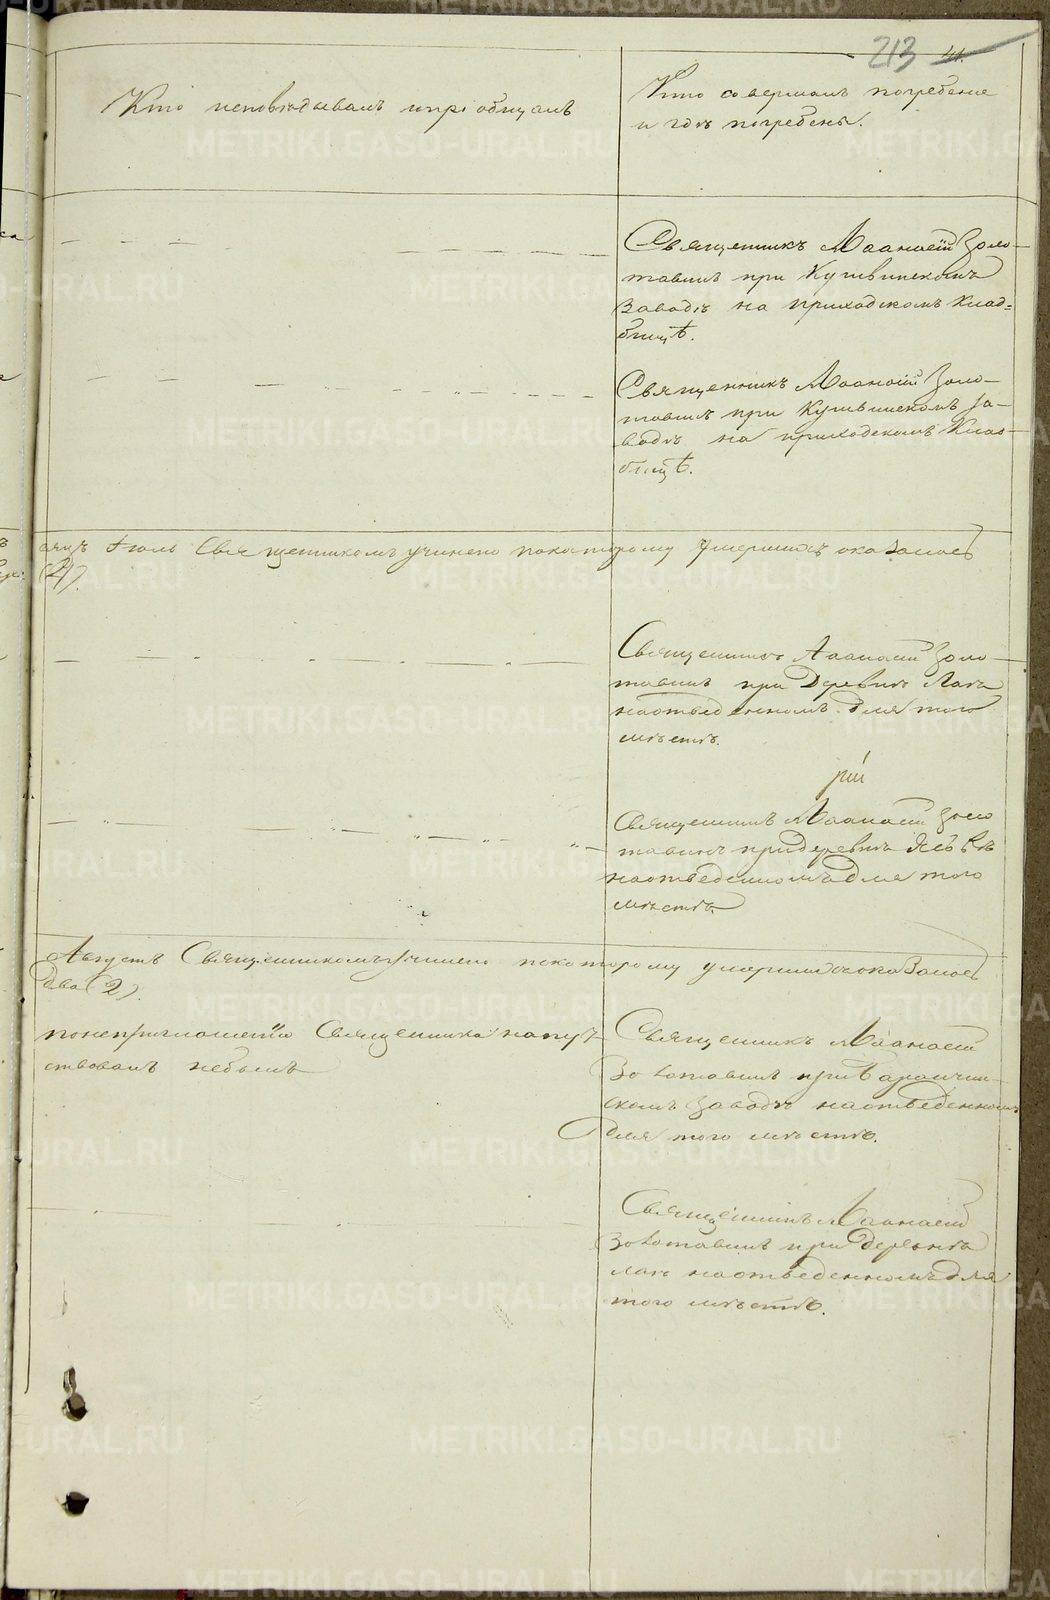 213 41.
Кто исповѣдывалъ и пріобщалъ
Кто совершалъ погребеніе
и гдѣ погребены.
Священникъ Аѳанасій Золо-
тавинъ при Кушвинскомъ
Заводѣ на приходскомъ Клад=
бищѣ.
Священникъ Аѳанасій Золо-
тавинъ при Кушвинскомъ За-
водѣ на приходскомъ Клад-
бищѣ.
сяцъ Іюль Священникомъ учинено по которому умершихъ оказалось
(2).
Священникъ Аѳанасій Золо-
тавинъ при Деревнѣ Лаѣ
на отведенномъ для того
мѣстѣ.
рій
Священникъ Аѳанасій Золо
тавинъ при деревнѣ
на отведенномъ для того
мѣстѣ.
Августъ Священникомъ учинено по которому умершихъ оказалось
два (2).
по неприглашенію Священника напут-
ствованъ небылъ
Священникъ Аѳанасій
Золотавинъ при Баранчин-
скомъ заводѣ на отведенномъ
для того мѣстѣ.
Священникъ Аѳанасій
Золотавинъ при Деревнѣ
Лаѣ на отведенномъ для
того мѣстѣ.
METRIKI.GASO-URAL.RU